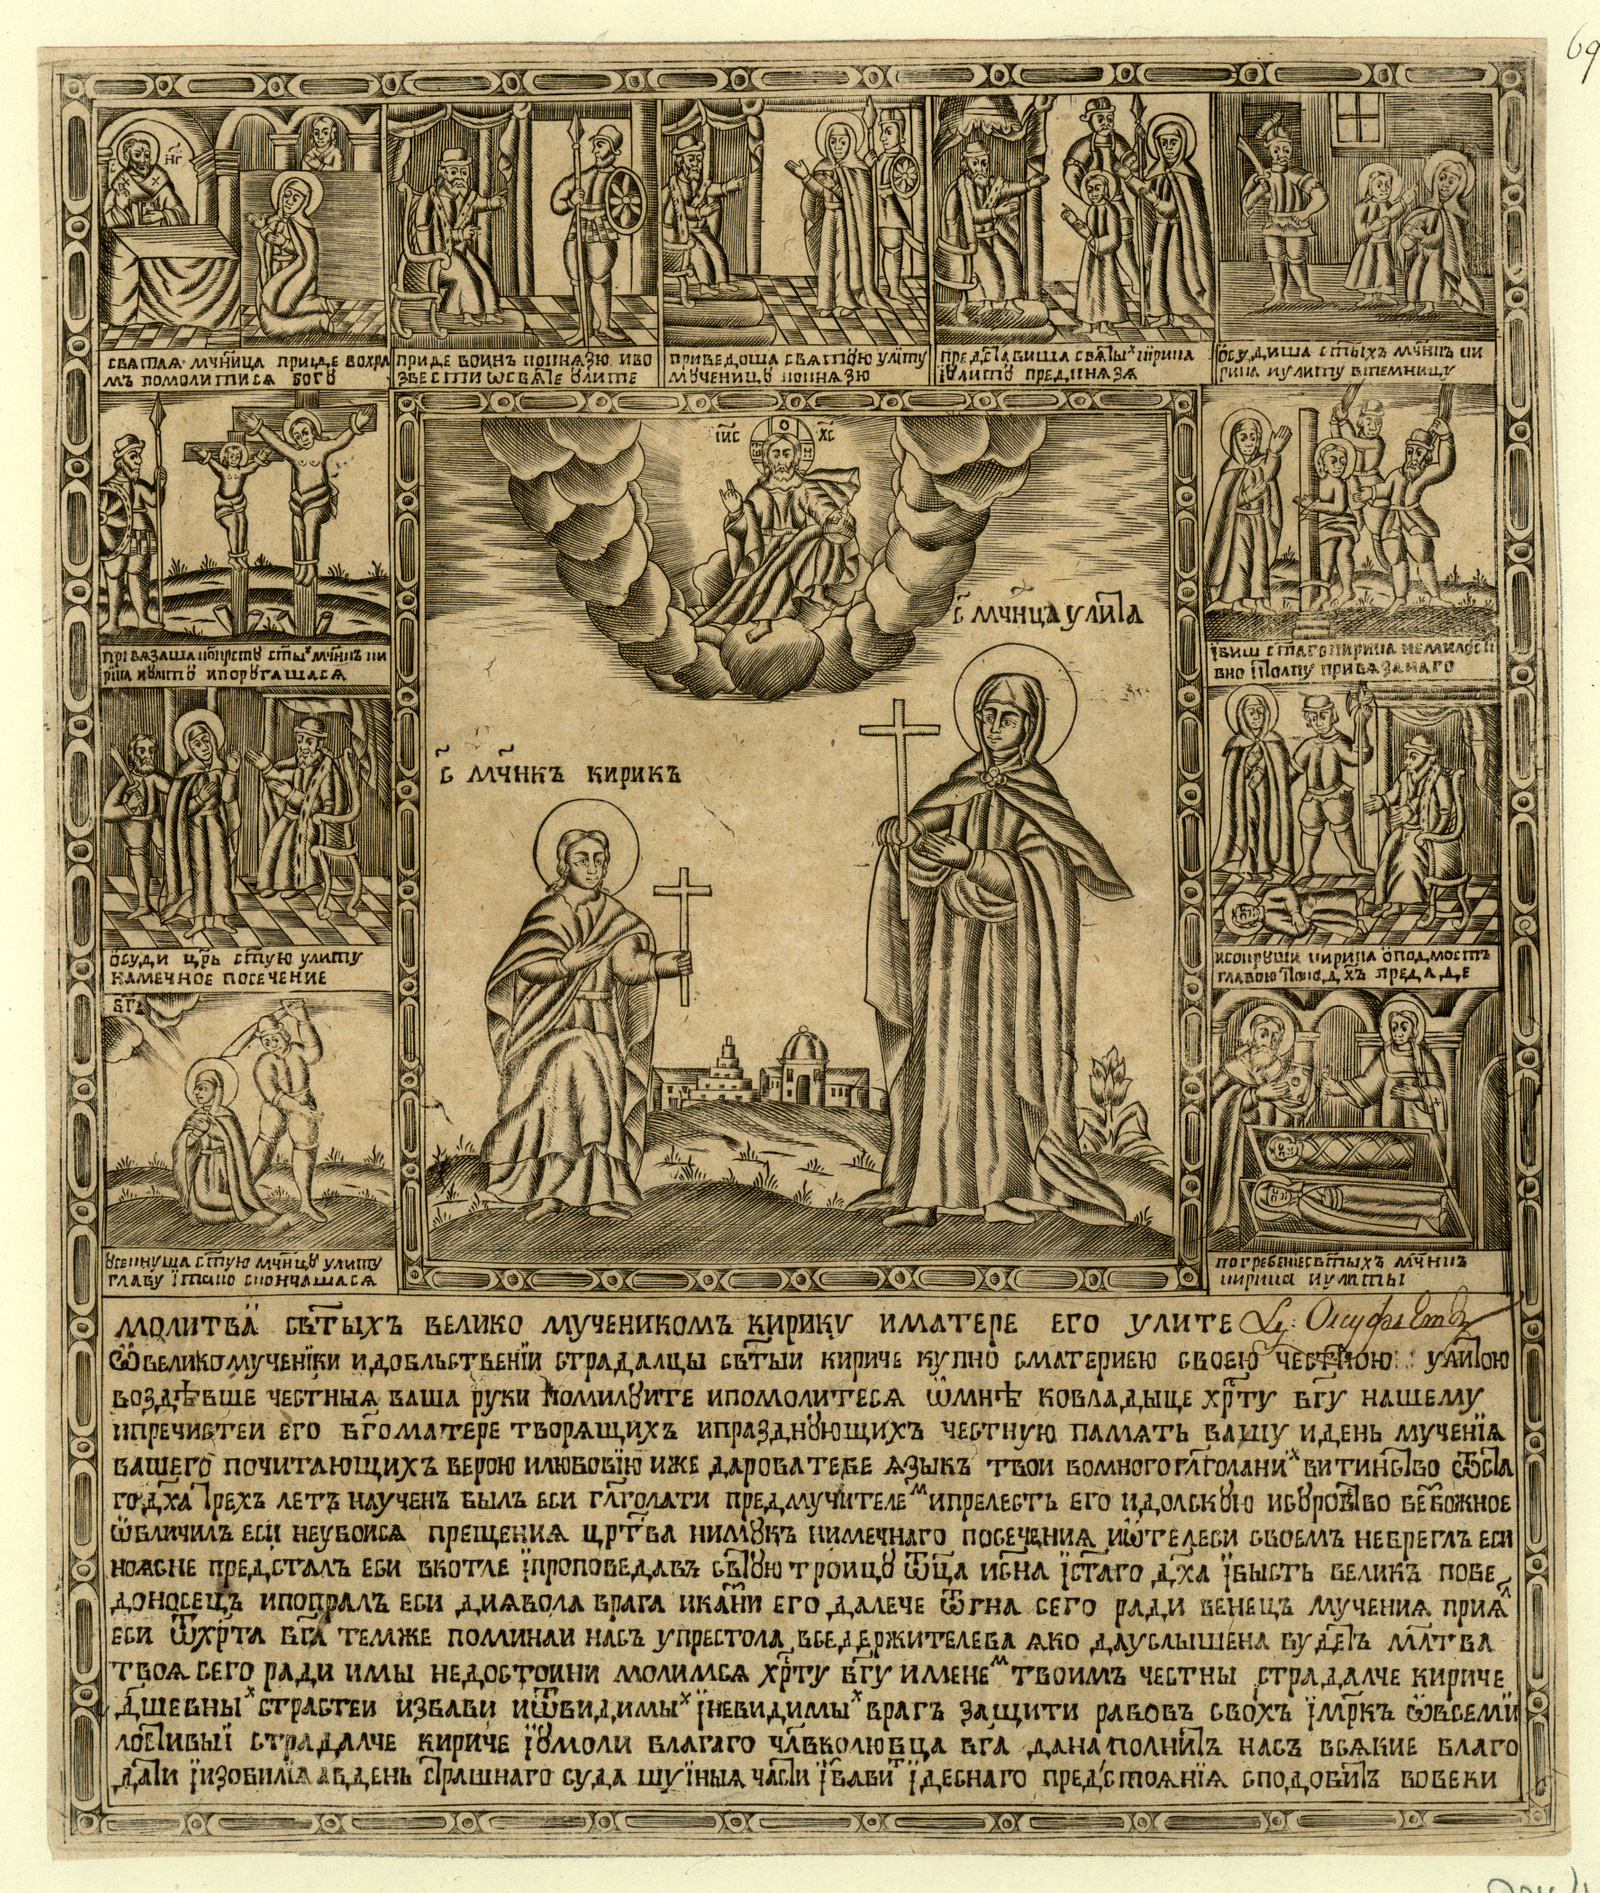 69
НГ
СВАТАЯ МЧ҃НИЦА ПРИИДЕ ВОХРА
МЪ ПОМОЛИТИСЯ БОГꙋ
ПРИДЕ ВОИНЪ КОКНЯЗЮ ИВО
ЗВЕСТИ ѠСВЯТЕ ꙋЛИТЕ
ПРИВЕДОША СВЯТꙋЮ УЛИТУ
МꙋЧЕНИЦꙋ КОКНЯЗЮ
ПРЕДСТАВИША СВЯТЫХ КИРИКА
IꙋЛИТꙋ ПРЕДКНЯЗЯ
ѠСꙋДИША СТ҃ЫХЪ МЧ҃НКЪ КИ
РИКА ИУЛИТУ ВТЕМНИЦУ
ПРIВЯЗАША КОКРЕСТꙋ СТ҃Ы МЧ҃НКЪ КИ
РИКА ИꙋЛИТꙋ ИПОРꙋГАШАСЯ
IБИШ СТ҃АГО КИРИКА НЕМИЛОСТИ
ВНО СТОЛПУ ПРИВЯЗАНАГО
IИ҃С ХС҃
С҃ МЧ҃НЦА УЛИТА
С҃ МЧ҃НКЪ КИРИКЪ
ѠСУДИ ЦР҃Ь СТ҃УЮ УЛИТУ
НАМЕЧНОЕ ПОСЕЧЕНИЕ
ИСОКРꙋШИ КИРИКА ѠПОДМОСТЪ
ГЛАВОЮ ТАКО ДХ҃Ъ ПРЕДАДЕ
БГ҃Ъ
ꙋСЕКНУША СТ҃УЮ МЧ҃НЦꙋ УЛИТУ
ГЛАВУ IТАКО СКОНЧАШАСЯ
ПОГРЕБЕНIЕ СВ҃ТЫХЪ МЧ҃НКЪ
КИРИКА ИУЛИТЫ
МОЛИТВА СВ҃ТЫХЪ ВЕЛИКО МУЧЕНИКОМЪ КИРИКУ ИМАТЕРЕ ЕГО УЛИТЕ
Ѡ ВЕЛИКОМУЧЕНIКИ ИДОБЛЬСТВЕНIИ СТРАДАЛЦЫ СВ҃ТЫИ КИРИЧЕ КУПНО СМАТЕРИЕЮ СВОЕЮ ЧЕСТНОЮ УЛИТОЮ
ВОЗДѢВШЕ ЧЕСТНЫЯ ВАША РУКИ ПОМИЛꙋИТЕ ИПОМОЛИТЕСЯ ѠМНѢ КОВЛАДЫЦЕ ХР҃ТУ БГ҃У НАШЕМУ
ИПРЕЧИСТЕИ ЕГО БГ҃ОМАТЕРЕ ТВОРЯЩИХЪ ИПРАЗДНꙋЮЩИХЪ ЧЕСТНУЮ ПАМЯТЬ ВАШУ ИДЕНЬ МУЧЕНIЯ
ВАШЕГО ПОЧИТАЮЩИХЪ ВЕРОЮ ИЛЮБОВIЮ ИЖЕ ДАРОВА ТЕБЕ ЯЗЫКЪ ТВОИ ВОМНОГОГЛ҃ГОЛАНИХ ВИТИНСТВО ѾСТА
ГО ДХ҃А ТРЕХЪ ЛЕТЪ НАУЧЕНЪ БЫЛЪ ЕСИ ГЛ҃ГОЛАТИ ПРЕДМУЧИТЕЛЕМ ИПРЕЛЕСТЬ ЕГО ИДОЛСКꙋЮ ИСꙋРОВСТВО БЕЗБОЖНОЕ
ѠБЛИЧИЛЪ ЕСИ НЕУБОИСЯ ПРЕЩЕНИЯ ЦРТ҃ВА НИМꙋКЪ НИМЕЧНАГО ПОСЕЧЕНИЯ ИѠТЕЛЕСИ СВОЕМЪ НЕБРЕГЛЪ ЕСИ
НОЯСНЕ ПРЕДСТАЛЪ ЕСИ ВКОТЛЕ IПРОПОВЕДАВЪ СВ҃ТꙋЮ ТРОИЦꙋ ѾЦ҃А ИСН҃А IСТ҃АГО ДХ҃А IБЫСТЬ ВЕЛИКЪ ПОБЕ
ДОНОСЕЦЪ ИПОПРАЛЪ ЕСИ ДИЯВОЛА ВРАГА ИКАЗНИ ЕГО ДАЛЕЧЕ ѾГНА СЕГО РАДИ ВЕНЕЦЪ МУЧЕНИЯ ПРИЯЛ
ЕСИ ѾХР҃ТА БГ҃А ТЕМЖЕ ПОМИНАИ НАСЪ УПРЕСТОЛА ВСЕДЕРЖИТЕЛЕВА ЯКО ДАУСЛЫШЕНА БУДЕТЪ МЛ҃ТВА
ТВОЯ СЕГО РАДИ ИМЫ НЕДОСТОИНИ МОЛИМСЯ ХР҃ТУ БГ҃У ИМЕНЕМ ТВОИМЪ ЧЕСТНЫ СТРАДАЛЧЕ КИРИЧЕ
ДШ҃ЕВНЫХ СТРАСТЕИ ИЗБАВИ ИѾВИДИМЫХ IНЕВИДИМЫХ ВРАГЪ ЗАЩИТИ РАБОВЪ СВОХЪ IМР҃КЪ ѠВСЕМИ
ЛОСТИВЫI СТРАДАЛЧЕ КИРИЧЕ IꙋМОЛИ БЛАГАГО ЧЛ҃ВКОЛЮБЦА БГ҃А ДАНАПОЛНИТЪ НАСЪ ВСЯКИЕ БЛАГО
ДАТИ IИЗОБИЛIЯ АВДЕНЬ СТРАШНАГО СУДА ШУIНЫЯ ЧАСТИ IЗБАВИТ IДЕСНАГО ПРЕДСТОЯНIЯ СПОДОБИТЪ ВОВЕКИ